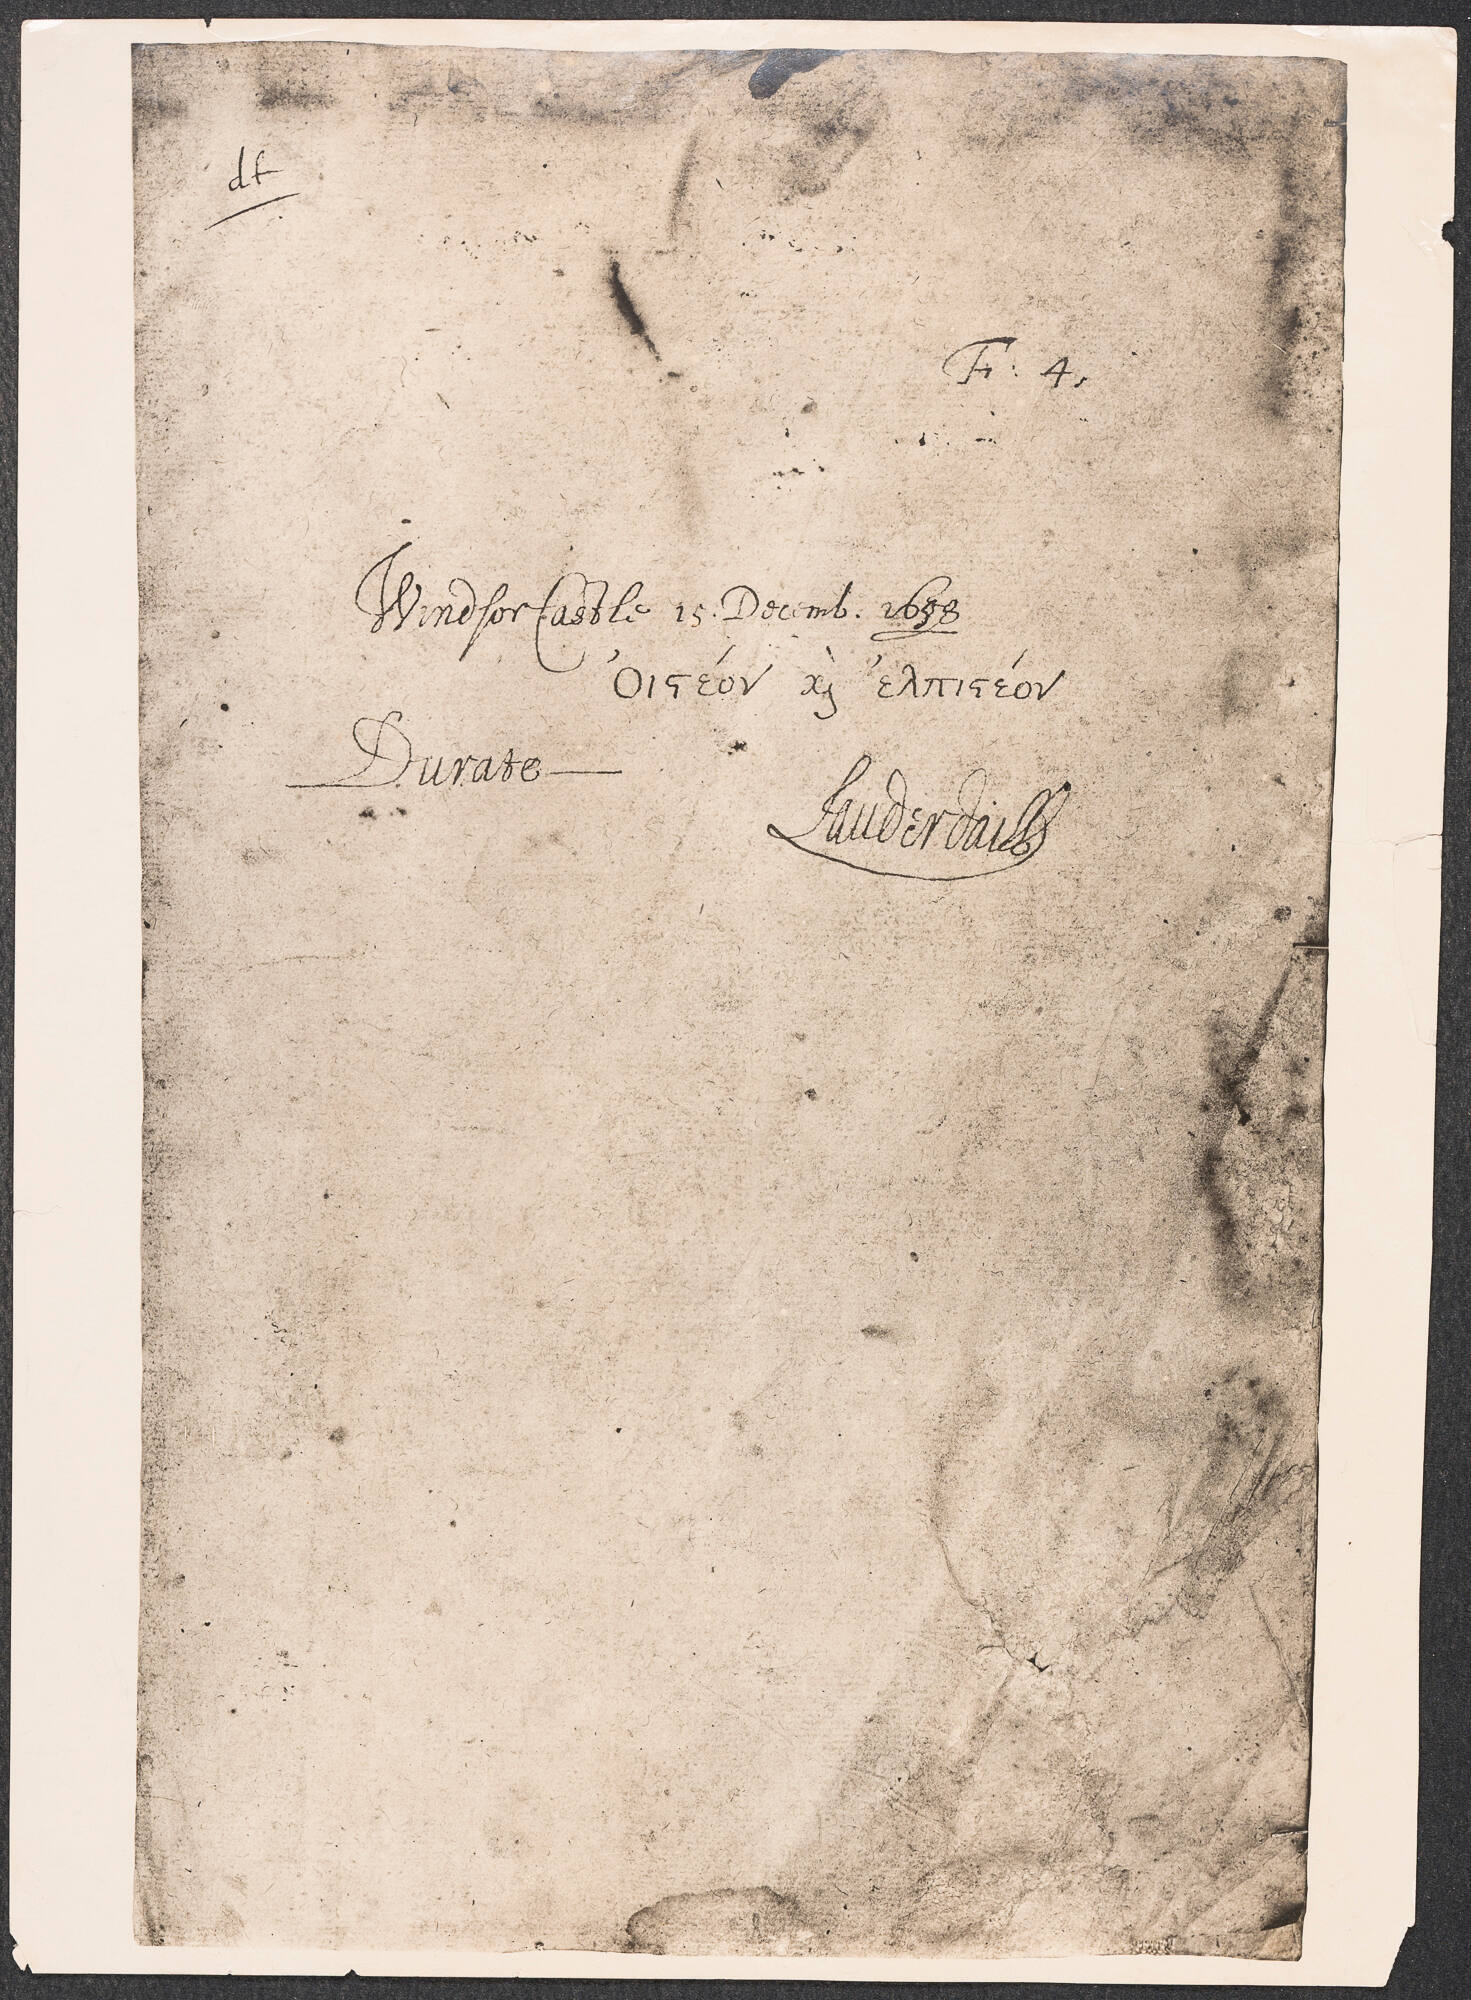 df
F: 4.
Windsor Castle 15. Decemb. 1658
Ὀιϛέον ϗ ἐλπιϛέον
Durate
Lauderdaill